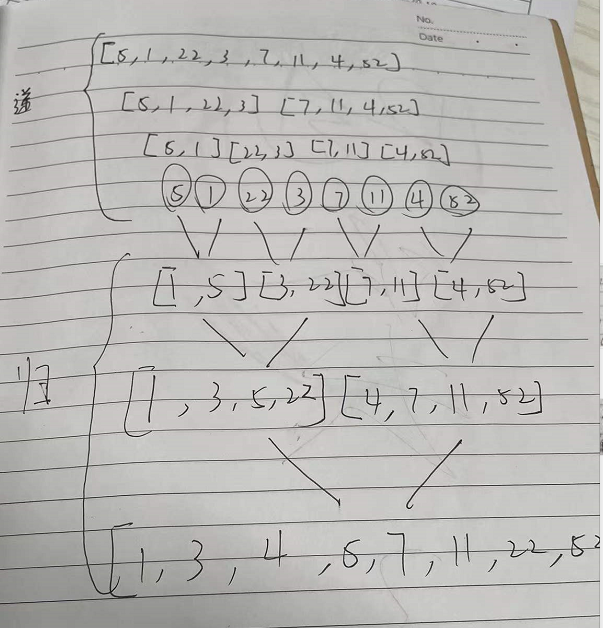 No.
Date
[5, 1, 22, 3, 7, 11, 4, 52]
递
[5, 1, 22, 3] [7, 11, 4, 52]
[5, 1] [22, 3] [7, 11] [4, 52]
5 1 22 3 7 11 4 52
[1, 5] [3, 22] [7, 11] [4, 52]
归
[1, 3, 5, 22] [4, 7, 11, 52]
[1, 3, 4, 5, 7, 11, 22, 52